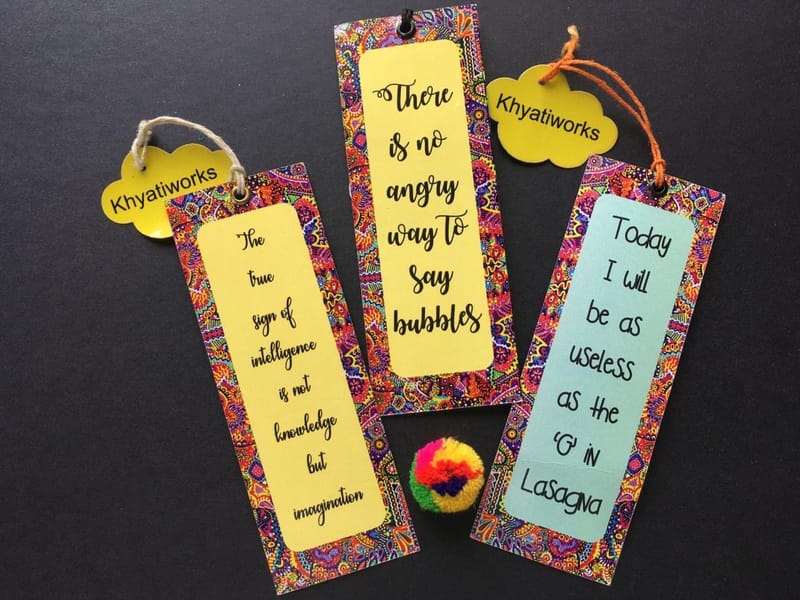 Khyatiworks
The
true
sign of
intelligence
is not
knowledge
but
imagination
There
is no
angry
way to
say
bubbles
Khyatiworks
Today
I will
be as
useless
as the
'G' in
Lasagna